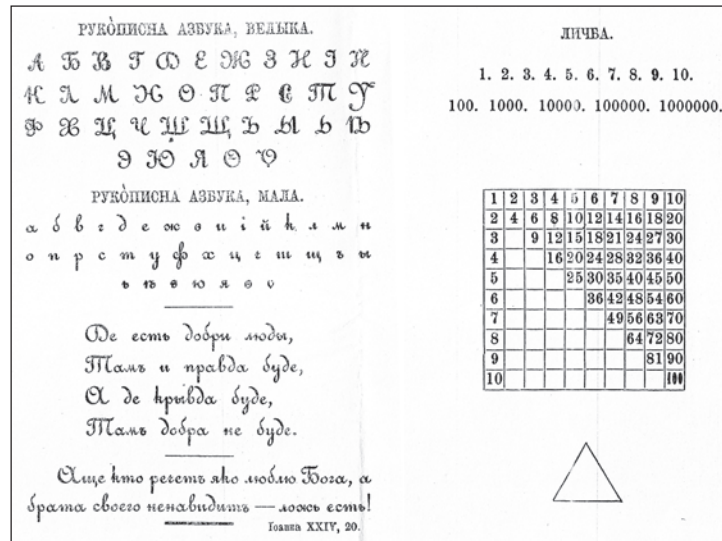 РУКО̀ПИСНА АЗБУКА, ВЕЛЫКА.
А Б В Г Д Е Ж З И І Й
К Л М Н О П Р С Т У
Ф Х Ц Ч Ш Щ Ъ Ы Ь Ѣ
Э Ю Я Ѳ Ѵ
РУКО̀ПИСНА АЗБУКА, МАЛА.
а б в г д е ж з и і й к л м н
о п р с т у ф х ц ч ш щ ъ ы
ь ѣ э ю я ѳ ѵ
Де есть добри люды,
Тамъ и правда буде,
А де крывда буде,
Тамъ добра не буде.
Аще кто речетъ яко люблю Бога, а
брата своего ненавидитъ — ложь есть!
Іоанна XXIV, 20.
ЛИЧБА.
1. 2. 3. 4. 5. 6. 7. 8. 9. 10.
100. 1000. 10000. 100000. 1000000.
1 2 3 4 5 6 7 8 9 10
2 4 6 8 10 12 14 16 18 20
3 9 12 15 18 21 24 27 30
4 16 20 24 28 32 36 40
5 25 30 35 40 45 50
6 36 42 48 54 60
7 49 56 63 70
8 64 72 80
9 81 90
10 100